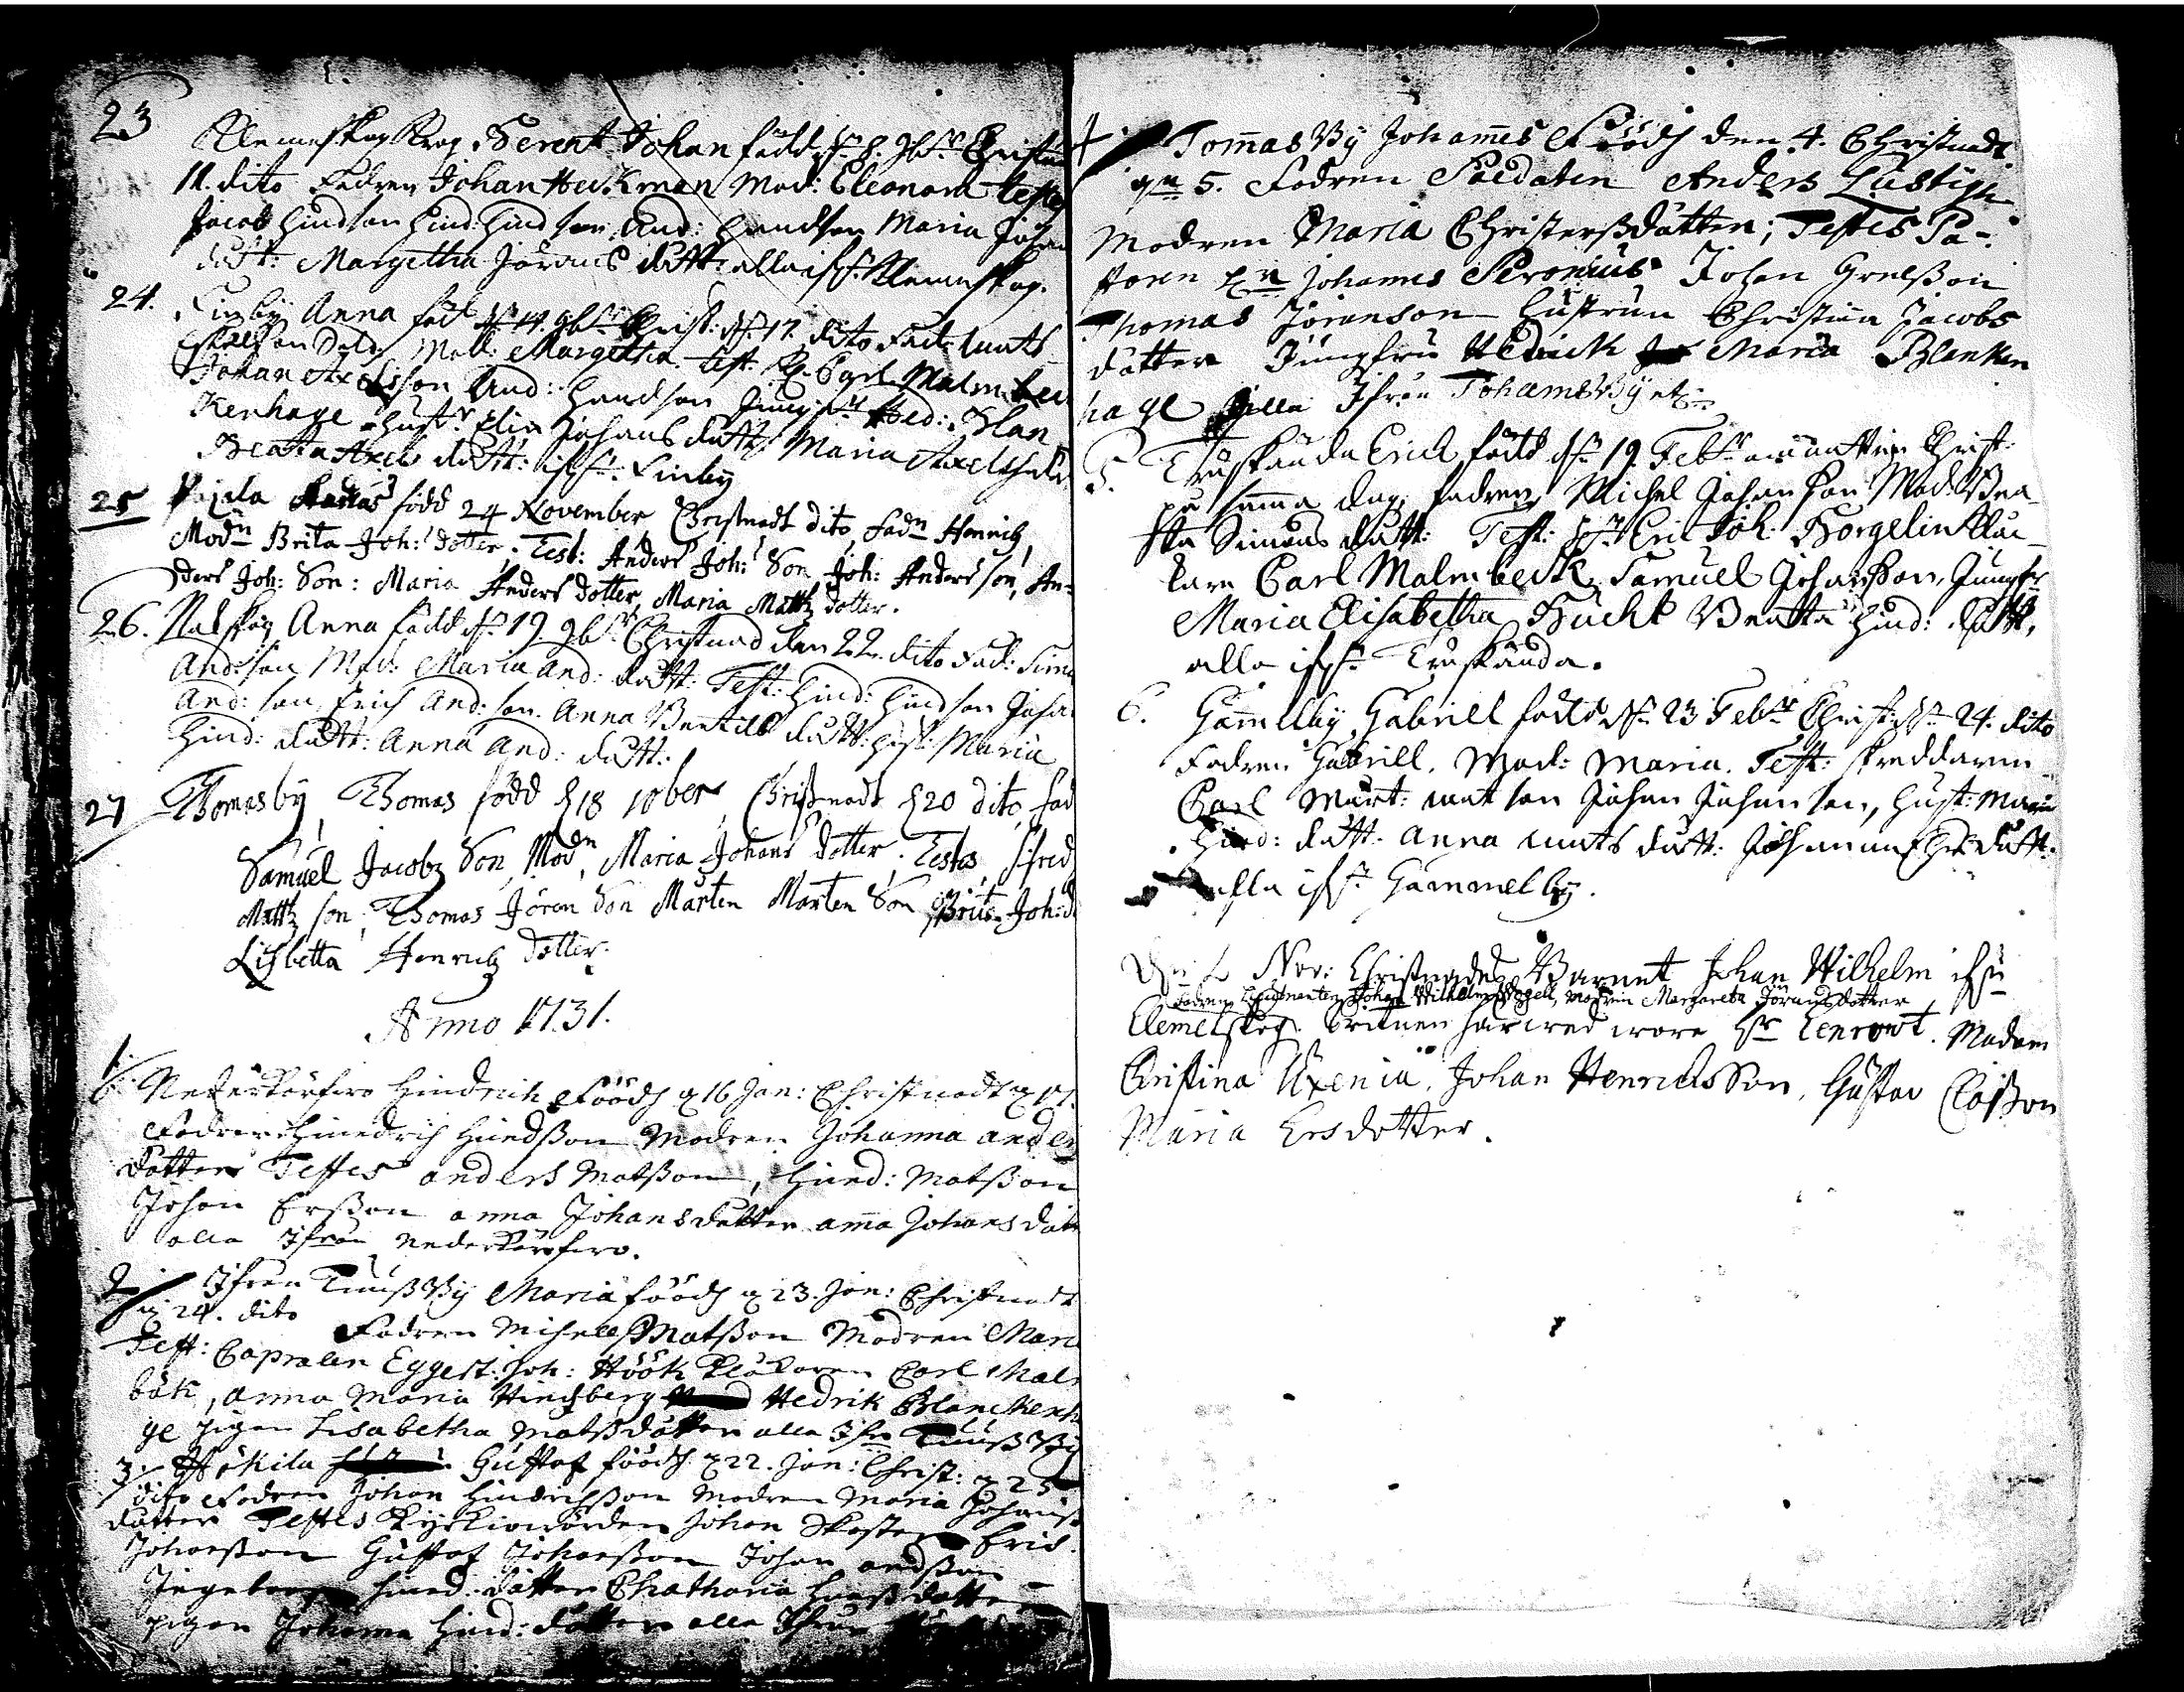 23
Klemeskog Krog Berent Johan född d. 8. 9br Christnad
11. dito Fadren Johan Heckman Mod: Eleonora testes
Jacob Hindson Hind: Hindson, And: Hendson Maria Johan
dott: Margetha Jörans dott: alla ifr. Klemeskog.
24. Finby Anna föd d. 14. 9br Christ: d. 17. dito Fad: Mats
Eskellson Sold: Mod: Margetha. test. Kl. Carl Malmbeck
Johan Axelsson And: Hendson Jungfr Hed: Blan
kenhage Hustr Elin Johans dott: Maria Axels dott
Beata Axels dott: ifr. Finby
25 född 24 November Christnadt dito, Fadn Henrich,
Modn Brita Joh: dotter. Test: Anders Joh: Son Joh: Andersson, An-
ders Joh: Son: Maria Anders dotter, Maria Mattz dotter.
26. Nalskog Anna född d. 19. 9br Christnad den 22. dito Fad: Simon
And: son Mod: Maria And: dott: Test: Hind: Hindson Johan
And: son Erich And: son. Anna Bertills dott: Hust: Maria
Hind: dott: Anna And: dott:
27 Thomasby, Thomas född d 18 10ber, Christnadt d 20 dito, fad
Samuel Jacobz Son, Modn, Maria Johans dotter. Testes, Sifred
Mattz son; Thomas Jöran Son Mårten Mårten Son Brita Joh: d
Lisbetta Henrichz dotter.
Anno 1731.
1. Nederkörfwo HindrichFöödh d 16 Jan: Christnadt d 17.
Fadren Hindrich Hindsson Modren Johanna anders
dotter Testes anders Matsson, Hind: Matsson
Johan Ersson anna Johansdotter anna Johans dott
alla Ifrån Nederkörfwo.
2 Ifrån Tuusby Maria föödh d 23. Jan: Christnadt
d 24. dito Fadren Michell Matsson Modren Maria
Test: Capralen Eggert: Joh: Höök Klåckaren Carl Malm
bäk, anna Maria Hindsberg Hedvik Blanckenha
ge pigan Lisabetha Matsdotter alla Ifrn Tuusby
3. Gustaf föödh d 22. Jan: Christ: d 25
dito Fadren Johan Hindrichsson Modren Maria Johans
dotter Testes Kyrkiowärden Johan Erich
Johansson Gustaf Johansson Johan andsson
Ingeborg Hind: dotter Chatharia dotter
pigan Johanna Hind: dotter alla Ifrån
4 Tomasby Johannes Föödh den 4. Christnadt
dn 5. Fadren Soldaten Anders Lustigh
Modren Maria Christersdotter; Testes Pa-
storn Hn Johannes Peronius Johan Grelsson
Thomas Jöranson Hustrun Christina Jacobs
dotter Jungfru Hedvick Maria Blanken
hage alla Ifrån Tohamsby etc
5. Träskända Erich född d. 19. Febr Christ:
på samma dag, fadren Michel Johansson Mod: Bea
ta Simons dott: Test: Hr. Eric Joh. Borgelin Kläc-
karn Carl Malmbeck, Samuel Johansson, Jungfr
Maria Elisabetha Bucht Beatta Hind: dott,
alla ifr. Träskända.
6. Gammelby, Gabriell född d. 23 Febr Christ: d. 24. dito
Fadren Gabriell. Mod: Maria. Test: Skreddaren
Carl Mårt: Matson Johan Johanson, Hust: Maria
Hind: dott. Anna Mats dott: Johanna dott.
alla ifr. Gammelby.
Nov: Christnades Barnet Johan Wilhelm ifrn
Fadren Lieutnanten Johan Wilhelm Modren Margareta Jöransdotter
Clemetskog. Vittnen härwed wore Hr Lenrowt. Madam
Christina Uxenia. Johan Henricksson, Gustav Classon
Maria Ersdotter.